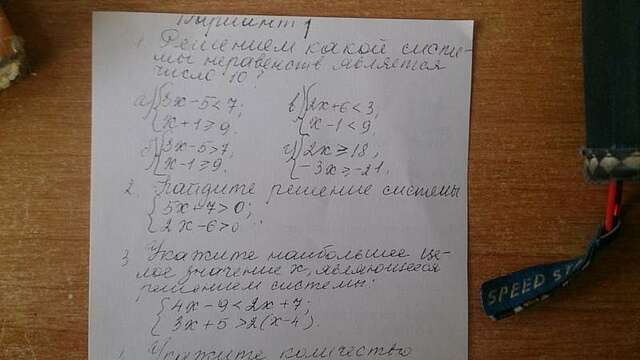 Вариант 1
1. Решением какой систе-
мы неравенств является
число 10?
а) { 3x-5<7; в) { 2x+6<3,
x+1≥9. x-1<9.
б) { 3x-5>7, г) { 2x≥18,
x-1≥9. -3x≥-21.
2. Найдите решение системы
{ 5x-7>0;
2x-6>0
3. Укажите наибольшее це-
лое значение x, являющееся
решением системы:
{ 4x-9<2x+7;
3x+5>2(x-4).
Укажите количество
SPEED ST